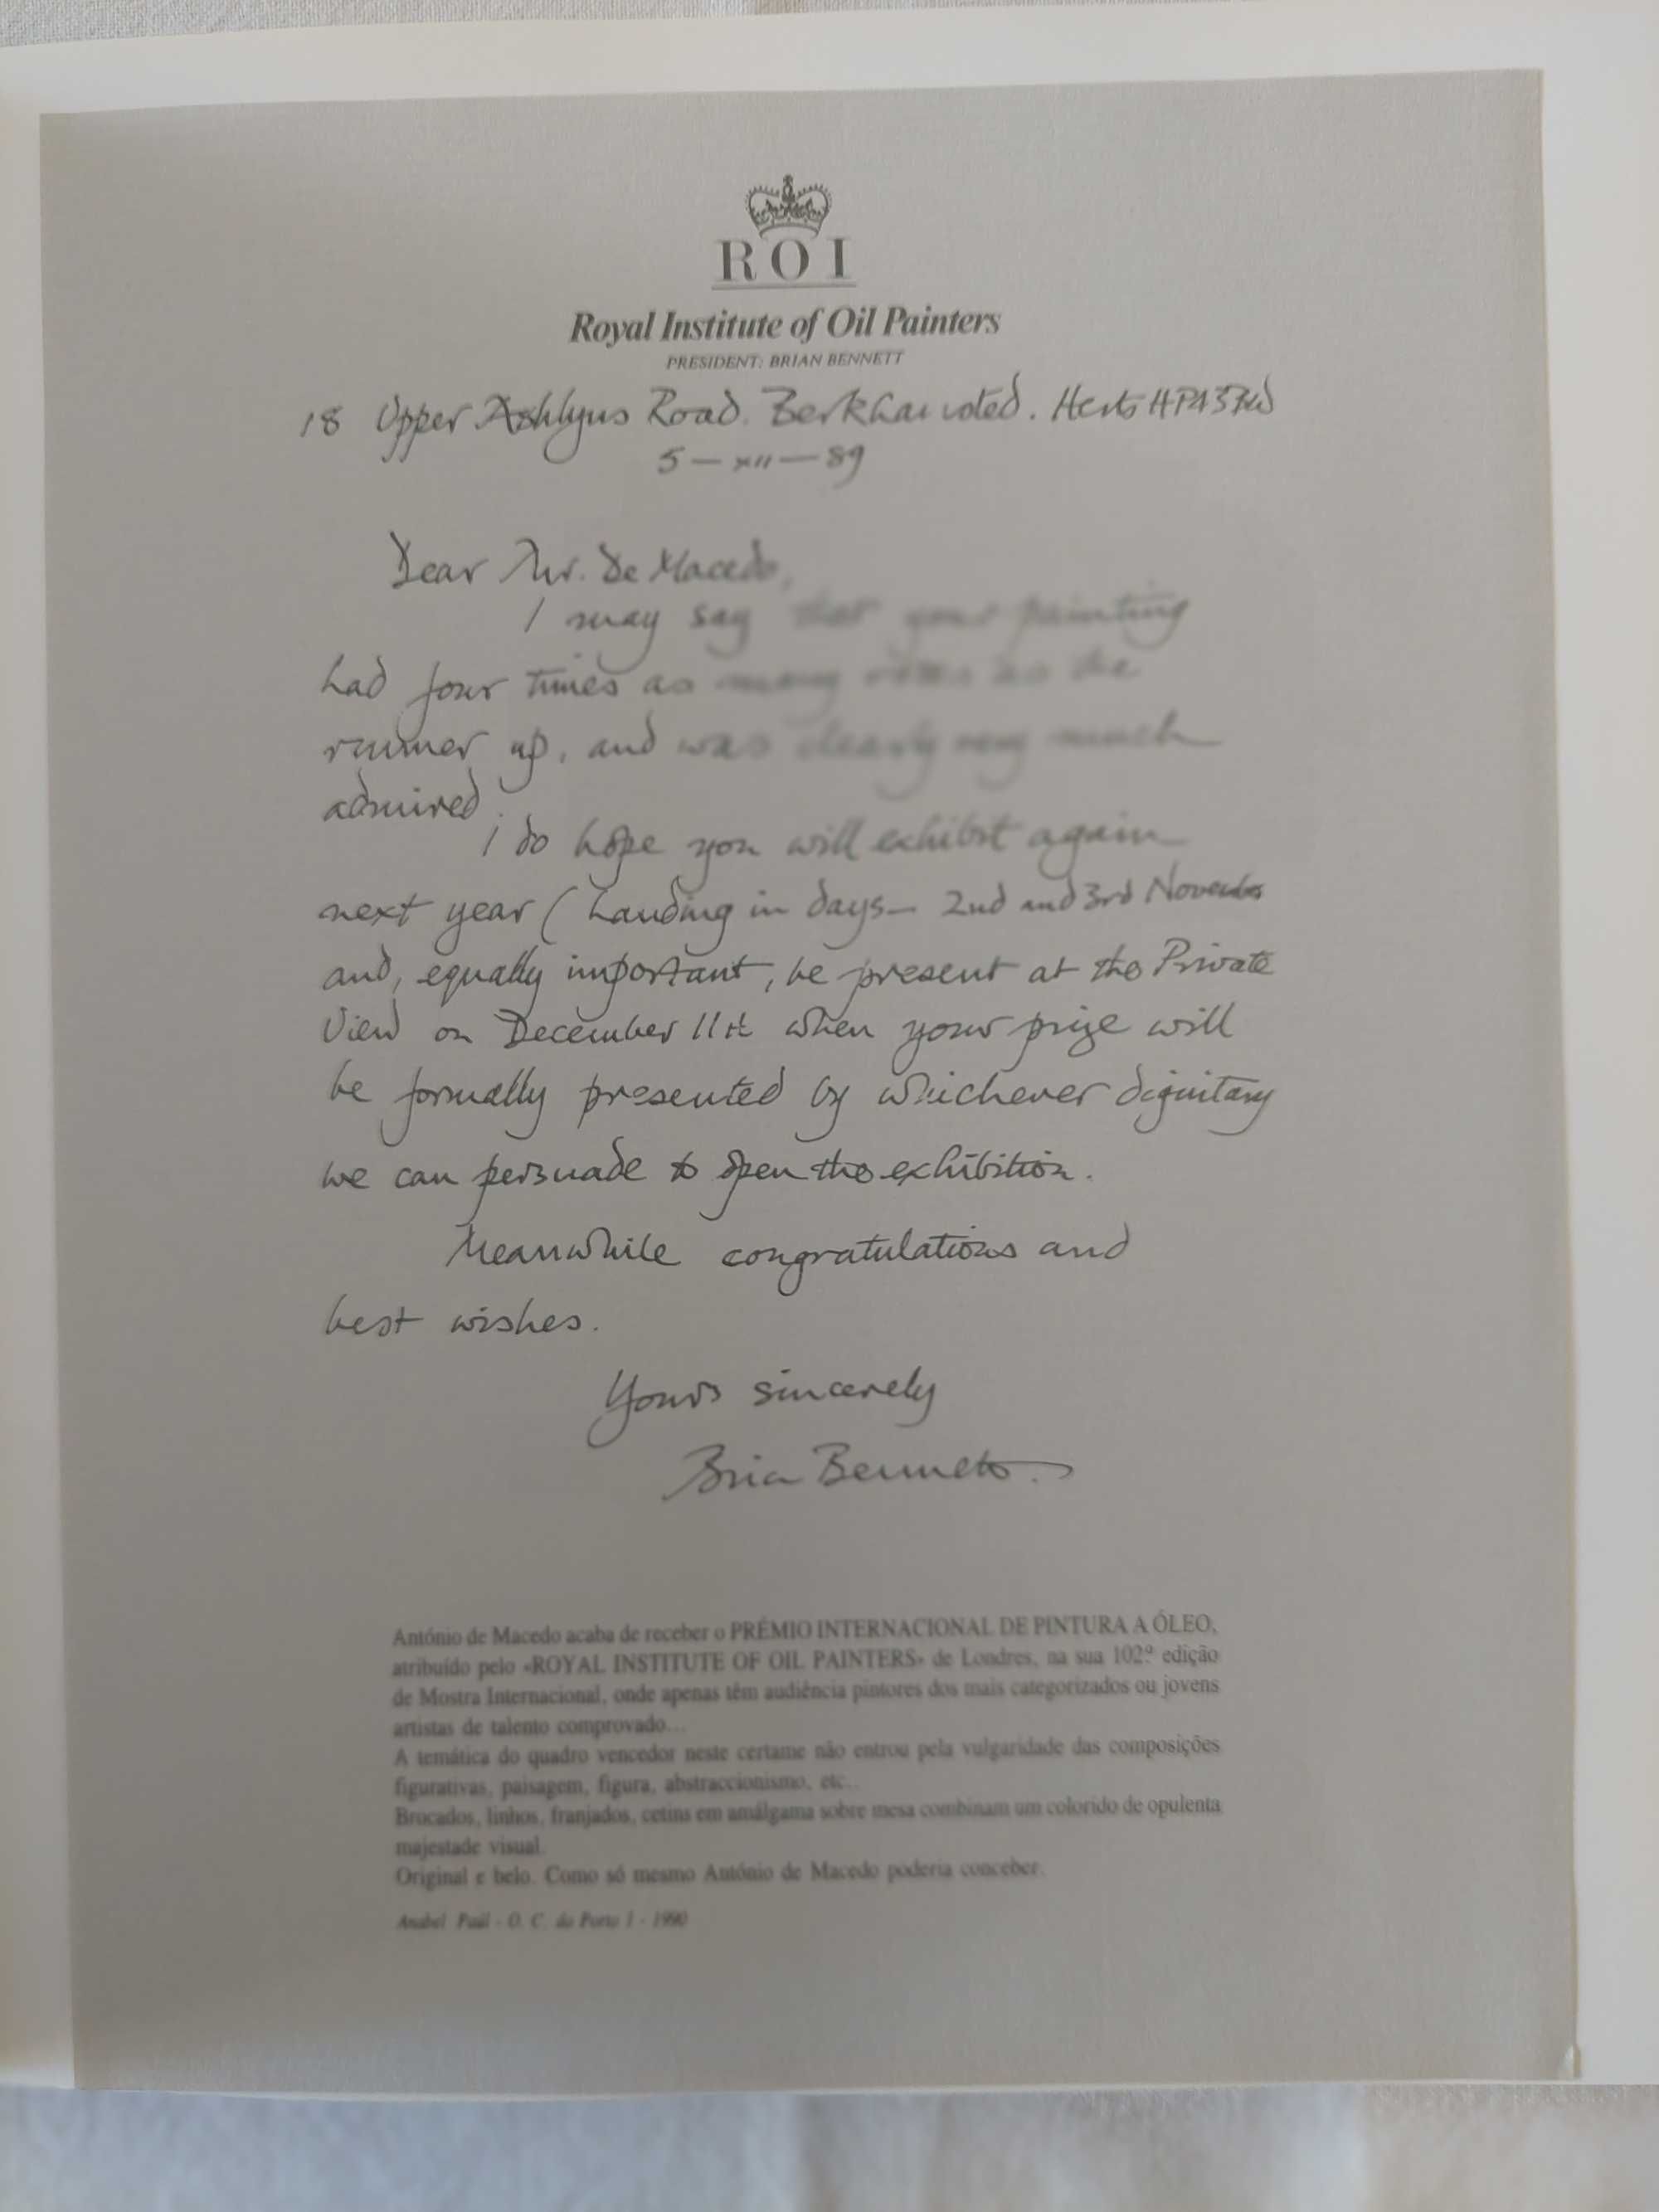 ROI
Royal Institute of Oil Painters
PRESIDENT: BRIAN BENNETT
18 Upper Ashlyns Road. Berkhamsted. Herts HP4 3BW
5 — XII — 89
Dear Mr. De Macedo,
I may say that your painting
had four times as many votes as the
runner up, and was clearly very much
admired.
I do hope you will exhibit again
next year (handing in days — 2nd and 3rd November
and, equally important, be present at the Private
View on December 11th when your prize will
be formally presented by whichever dignitary
we can persuade to open the exhibition.
Meanwhile congratulations and
best wishes.
Yours sincerely
Brian Bennett.
António de Macedo acaba de receber o PRÉMIO INTERNACIONAL DE PINTURA A ÓLEO,
atribuído pelo «ROYAL INSTITUTE OF OIL PAINTERS» de Londres, na sua 102ª edição
de Mostra Internacional, onde apenas têm audiência pintores dos mais categorizados ou jovens
artistas de talento comprovado...
A temática do quadro vencedor neste certame não entrou pela vulgaridade das composições
figurativas, paisagem, figura, abstraccionismo, etc...
Brocados, linhos, franjados, cetins em amálgama sobre mesa combinam um colorido de opulenta
majestade visual.
Original e belo. Como só mesmo António de Macedo poderia conceber.
Anabel Paúl - O. C. do Porto 1 - 1990